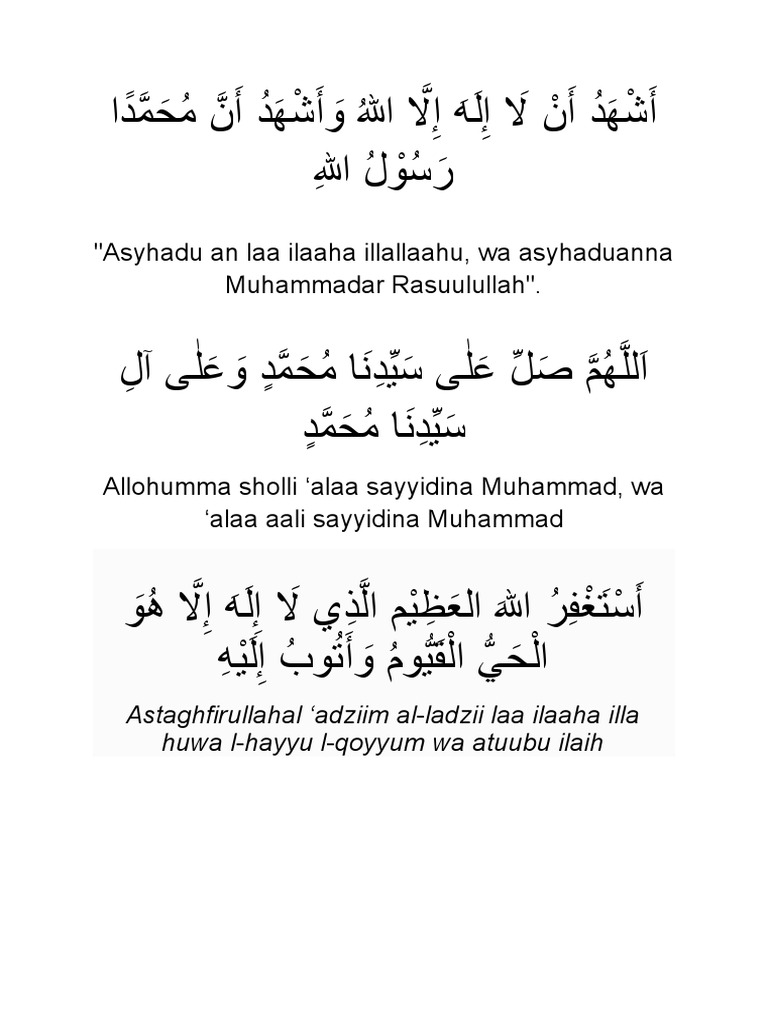 أَشْهَدُ أَنْ لَا إِلَهَ إِلَّا اللهُ وَأَشْهَدُ أَنَّ مُحَمَّدًا
رَسُوْلُ اللهِ
"Asyhadu an laa ilaaha illallaahu, wa asyhaduanna
Muhammadar Rasuulullah".
اَللَّهُمَّ صَلِّ عَلٰى سَيِّدِنَا مُحَمَّدٍ وَعَلٰى آلِ
سَيِّدِنَا مُحَمَّدٍ
Allohumma sholli ‘alaa sayyidina Muhammad, wa
‘alaa aali sayyidina Muhammad
أَسْتَغْفِرُ اللهَ العَظِيْم الَّذِي لَا إِلَهَ إِلَّا هُوَ
الْحَيُّ الْقَيُّومُ وَأَتُوبُ إِلَيْهِ
Astaghfirullahal ‘adziim al-ladzii laa ilaaha illa
huwa l-hayyu l-qoyyum wa atuubu ilaih